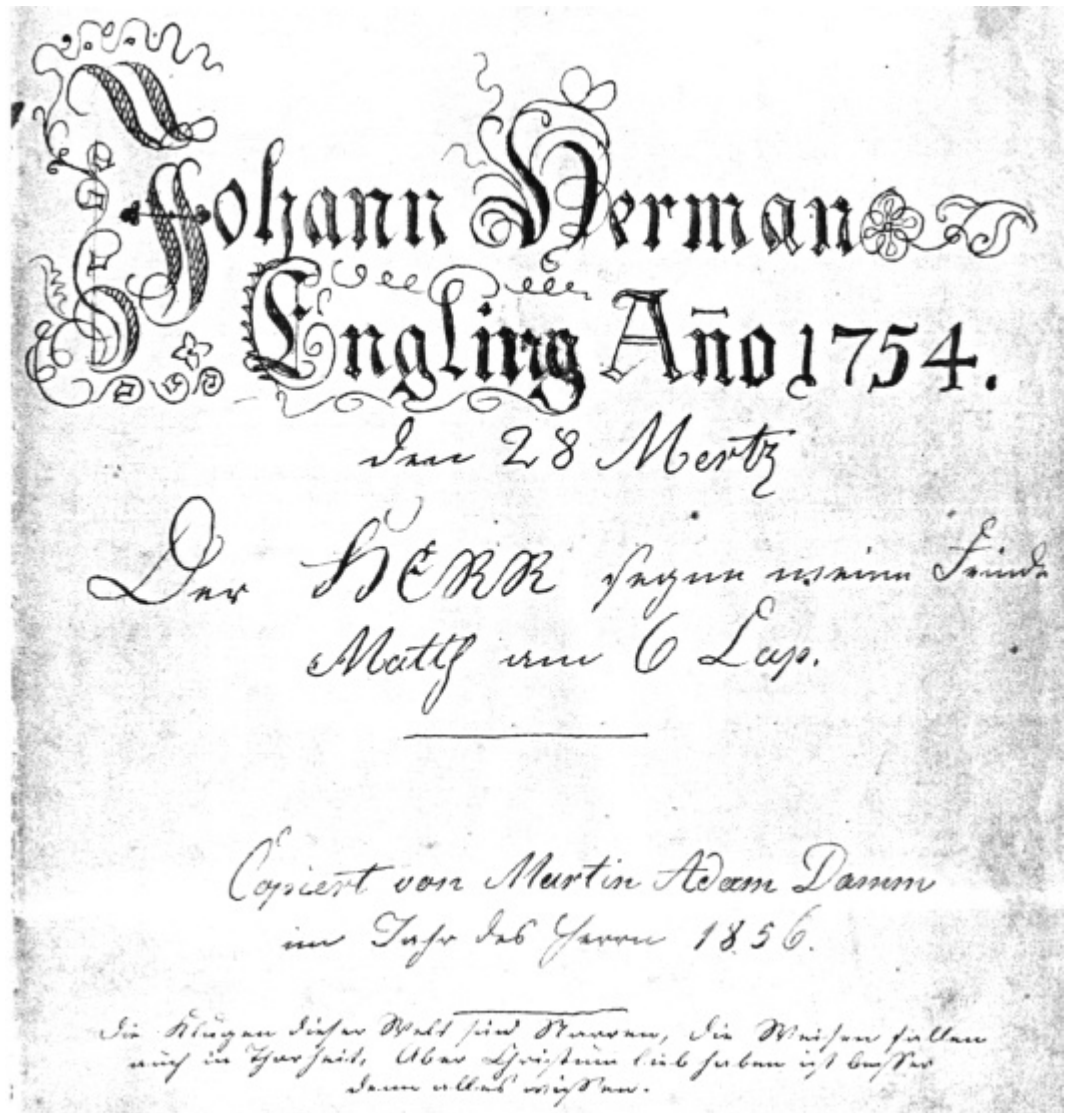 Johann Herman
Engling Año 1754.
den 28 Mertz
Der HERR segne meine Feinde
Matth am 6 Cap.
Copiert von Martin Adam Damm
im Jahr des Herrn 1856.
die Klugen dieser Welt sind Narren, die Weisen fallen
auch in Thorheit, Aber Christum lieb haben ist besser
denn alles wissen.